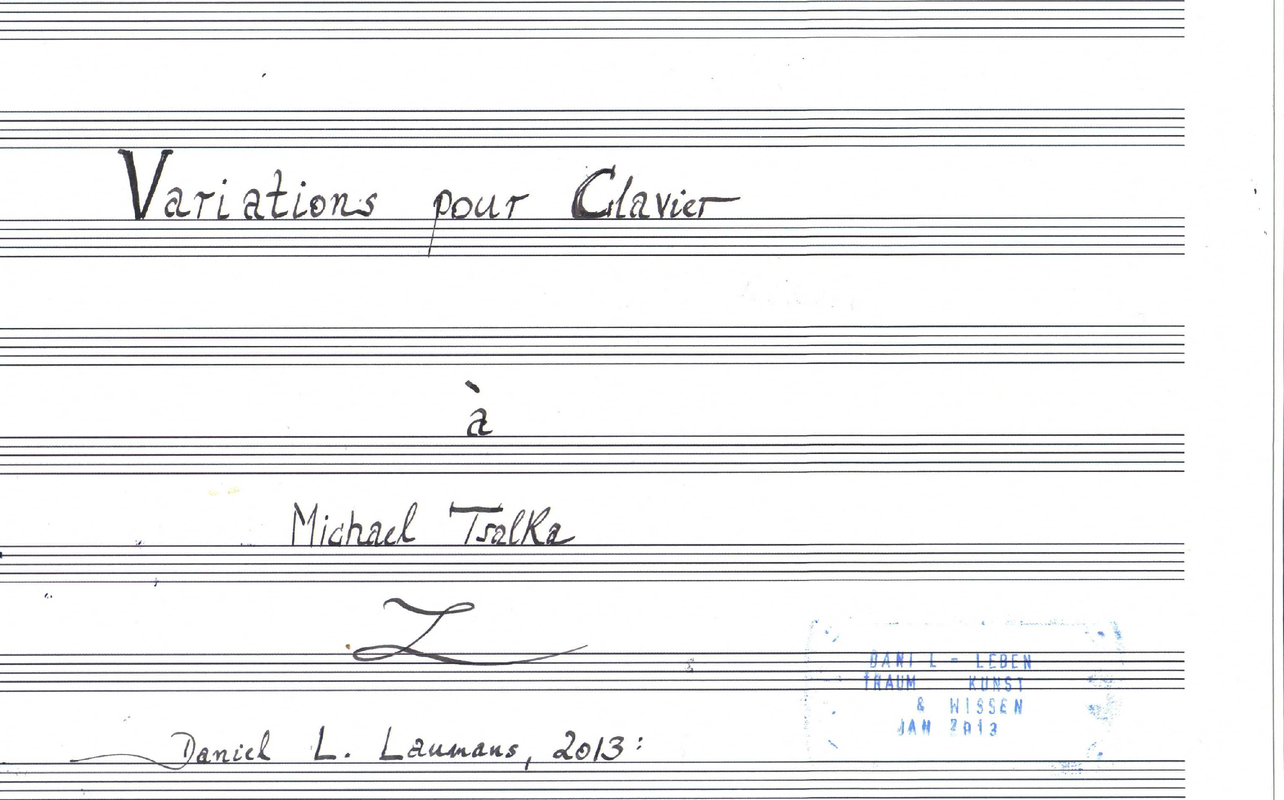 Variations pour Clavier
à
Michael Tsalka
Daniel L. Laumans, 2013:
DANI L - LEBEN
TRAUM KUNST
& WISSEN
JAN 2013